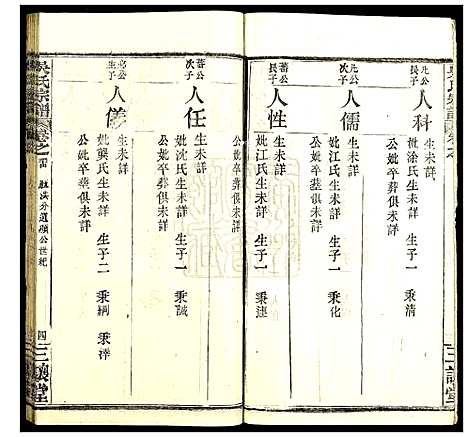 人科
生未詳
妣涂氏生未詳 生子一 秉清
公妣卒葬俱未詳
公
長子
人儒
生未詳
妣江氏生未詳 生子一 秉化
公妣卒葬俱未詳
公
長子
人性
生未詳
妣江氏生未詳 生子一 秉
公妣卒葬俱未詳
蕃公
次子
人任
生未詳
妣沈氏生未詳 生子一 秉誠
公妣卒葬俱未詳
公
生子
人儀
生未詳
妣龔氏生未詳 生子二 秉綱 秉
公妣卒葬俱未詳
吳氏宗譜
卷之
分遷 公世紀
四
三讓堂
三讓堂